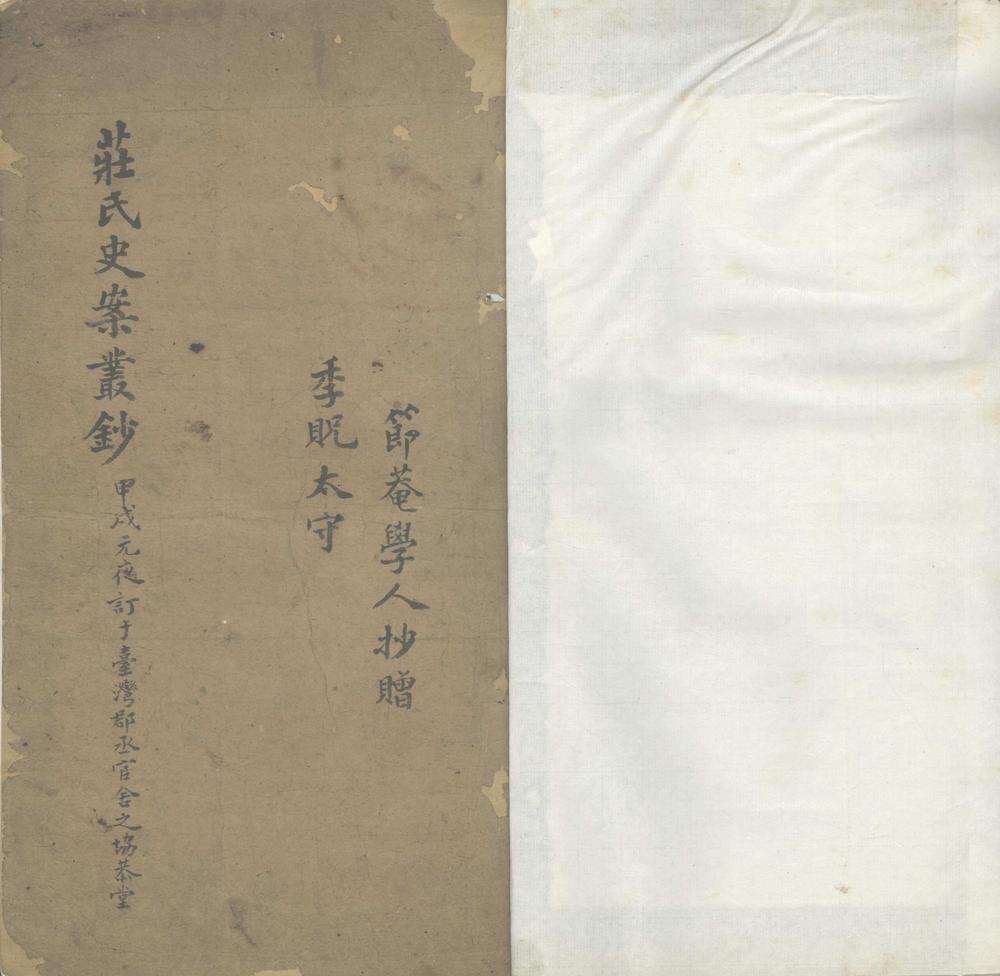 節菴學人抄贈
季貺太守
莊氏史案叢鈔 甲戌元夜訂于臺灣郡丞官舍之協恭堂